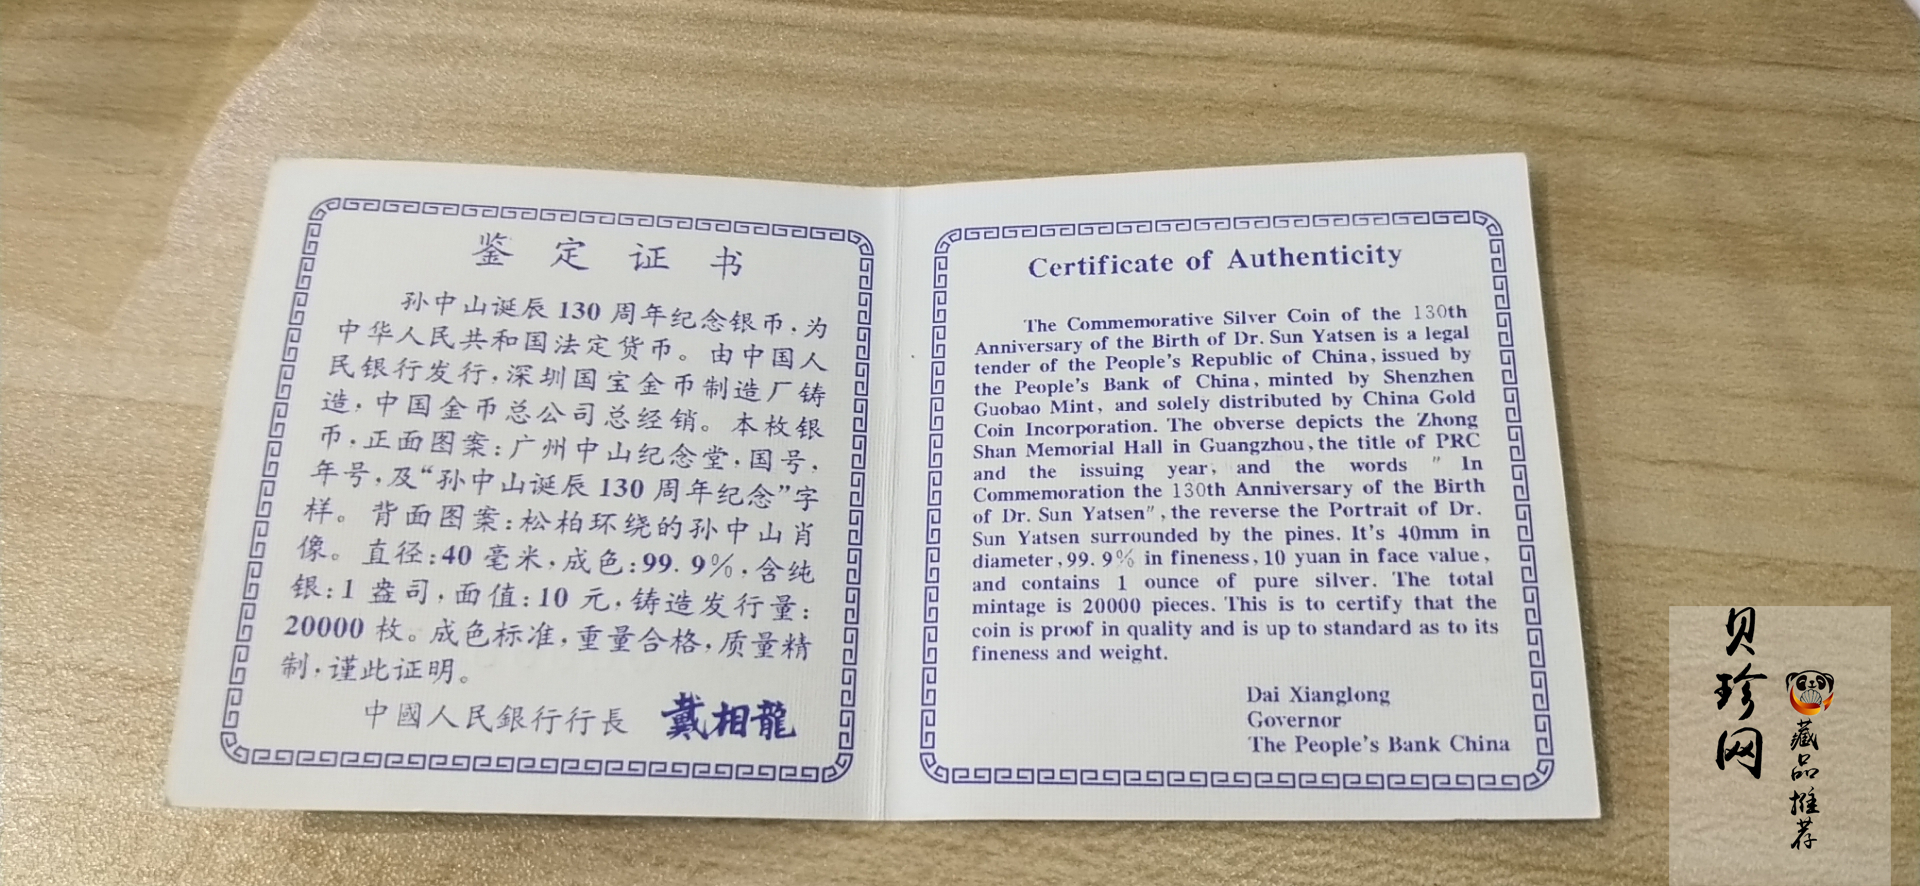 鉴定证书
孙中山诞辰 130 周年纪念银币,为
中华人民共和国法定货币。由中国人
民银行发行,深圳国宝金币制造厂铸
造,中国金币总公司总经销。本枚银
币,正面图案:广州中山纪念堂,国号,
年号,及“孙中山诞辰 130 周年纪念”字
样。背面图案:松柏环绕的孙中山肖
像。直径:40 毫米,成色:99.9%,含纯
银:1 盎司,面值:10 元,铸造发行量:
20000 枚。成色标准,重量合格,质量精
制,谨此证明。
中國人民銀行行長 戴相龍
Certificate of Authenticity
The Commemorative Silver Coin of the 130th
Anniversary of the Birth of Dr. Sun Yatsen is a legal
tender of the People's Republic of China, issued by
the People's Bank of China, minted by Shenzhen
Guobao Mint, and solely distributed by China Gold
Coin Incorporation. The obverse depicts the Zhong
Shan Memorial Hall in Guangzhou, the title of PRC
and the issuing year, and the words " In
Commemoration the 130th Anniversary of the Birth
of Dr. Sun Yatsen", the reverse the Portrait of Dr.
Sun Yatsen surrounded by the pines. It's 40mm in
diameter, 99.9% in fineness, 10 yuan in face value,
and contains 1 ounce of pure silver. The total
mintage is 20000 pieces. This is to certify that the
coin is proof in quality and is up to standard as to its
fineness and weight.
Dai Xianglong
Governor
The People's Bank China
贝珍网
藏品推荐